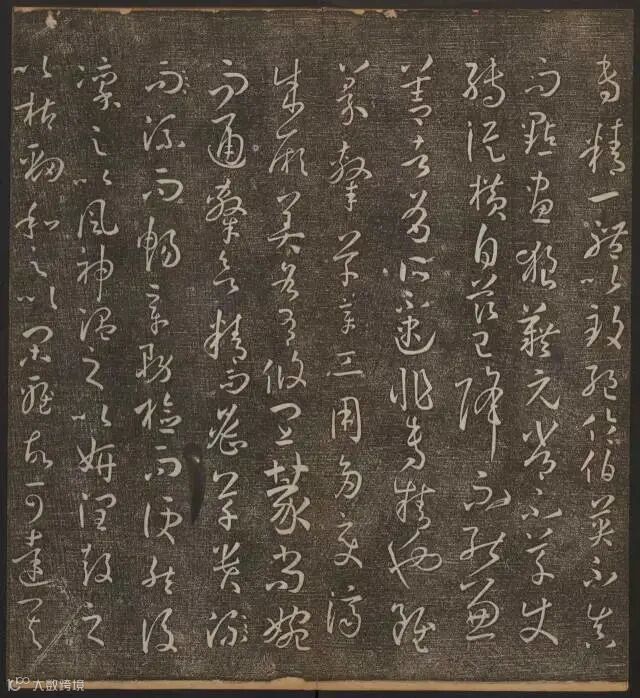 專精一體以致絕倫伯英不真
而點畫狼藉元常不草使
轉縱橫自茲已降不能兼
善者有所不逮非專精也雖
篆隸草章工用多變濟
成厥美各有攸宜篆尚婉
而通隸欲精而密草貴流
而暢章務檢而便然後
凜之以風神溫之以妍潤鼓之
以枯勁和之以閑雅故可達其
大数跨境